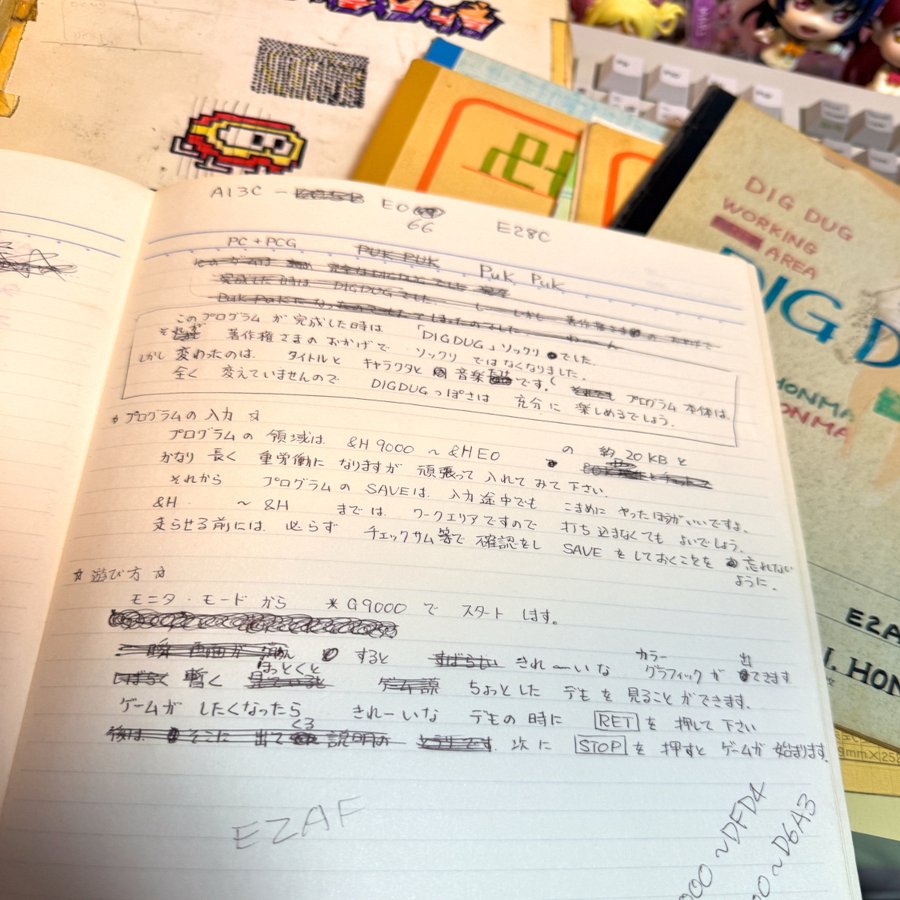 A13C -
E0
66
E28C
PC + PCG
PUK PUK
Puk Puk
このプログラム が 完成した時は 「DIGDUG」ソックリ でした.
著作権さまの おかげで ソックリ ではなくなりました.
しかし 変わったのは、 タイトルと キャラクタと 音楽だけです. プログラム 本体は、
全く 変えていませんので DIGDUG っぽさは 充分に 楽しめるでしょう.
☆プログラムの入力 ☆
プログラムの 領域は &H9000 ~ &HE0 の 約 20KB と
かなり 長く 重労働に なりますが 頑張って 入れて みて 下さい.
それから プログラムの SAVEは、入力途中でも こまめに やったほうがいいですよ.
&H ~ &H までは、ワークエリアですので 打ち込まなくても よいでしょう.
走らせる前には、必らず チェックサム等で 確認をし SAVE をしておくことを 忘れない
ように.
☆ 遊び方 ☆
モニタ・モード から *G9000 で スタート します。
すると きれーいな カラー グラフィックが 出てきます
暫く ほっとくと ちょっとした デモ を 見ることができます.
ゲームが したくなったら きれーいな デモの時に RET を 押して 下さい
次に STOP を 押すと ゲームが 始まります.
EZAF
000 ~DFD4
00 ~ D6A3
DIG DUG
WORKING
AREA
DIG D
HONMA
HONMA
EZA
HON
mm×252